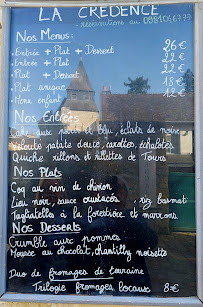 LA CREDENCE
reservations au
Nos Menus:
Entrée + Plat + Dessert 26 €
Entrée + Plat 22 €
Plat + Dessert 22 €
Plat unique 18 €
Menu enfant 12 €
Nos Entrées
noix et bleu, éclats de noix
patate douce, carottes, échalotes
Quiche rillons et rillettes de Tours
Nos Plats
Coq au vin de chinon
Lieu noir, sauce crustacés, riz basmati
Tagliatelles à la forestière et marrons
Nos Desserts
Crumble aux pommes
Mousse au chocolat, chantilly noisette
Duo de fromages de touraine
Trilogie fromages locaux 8€